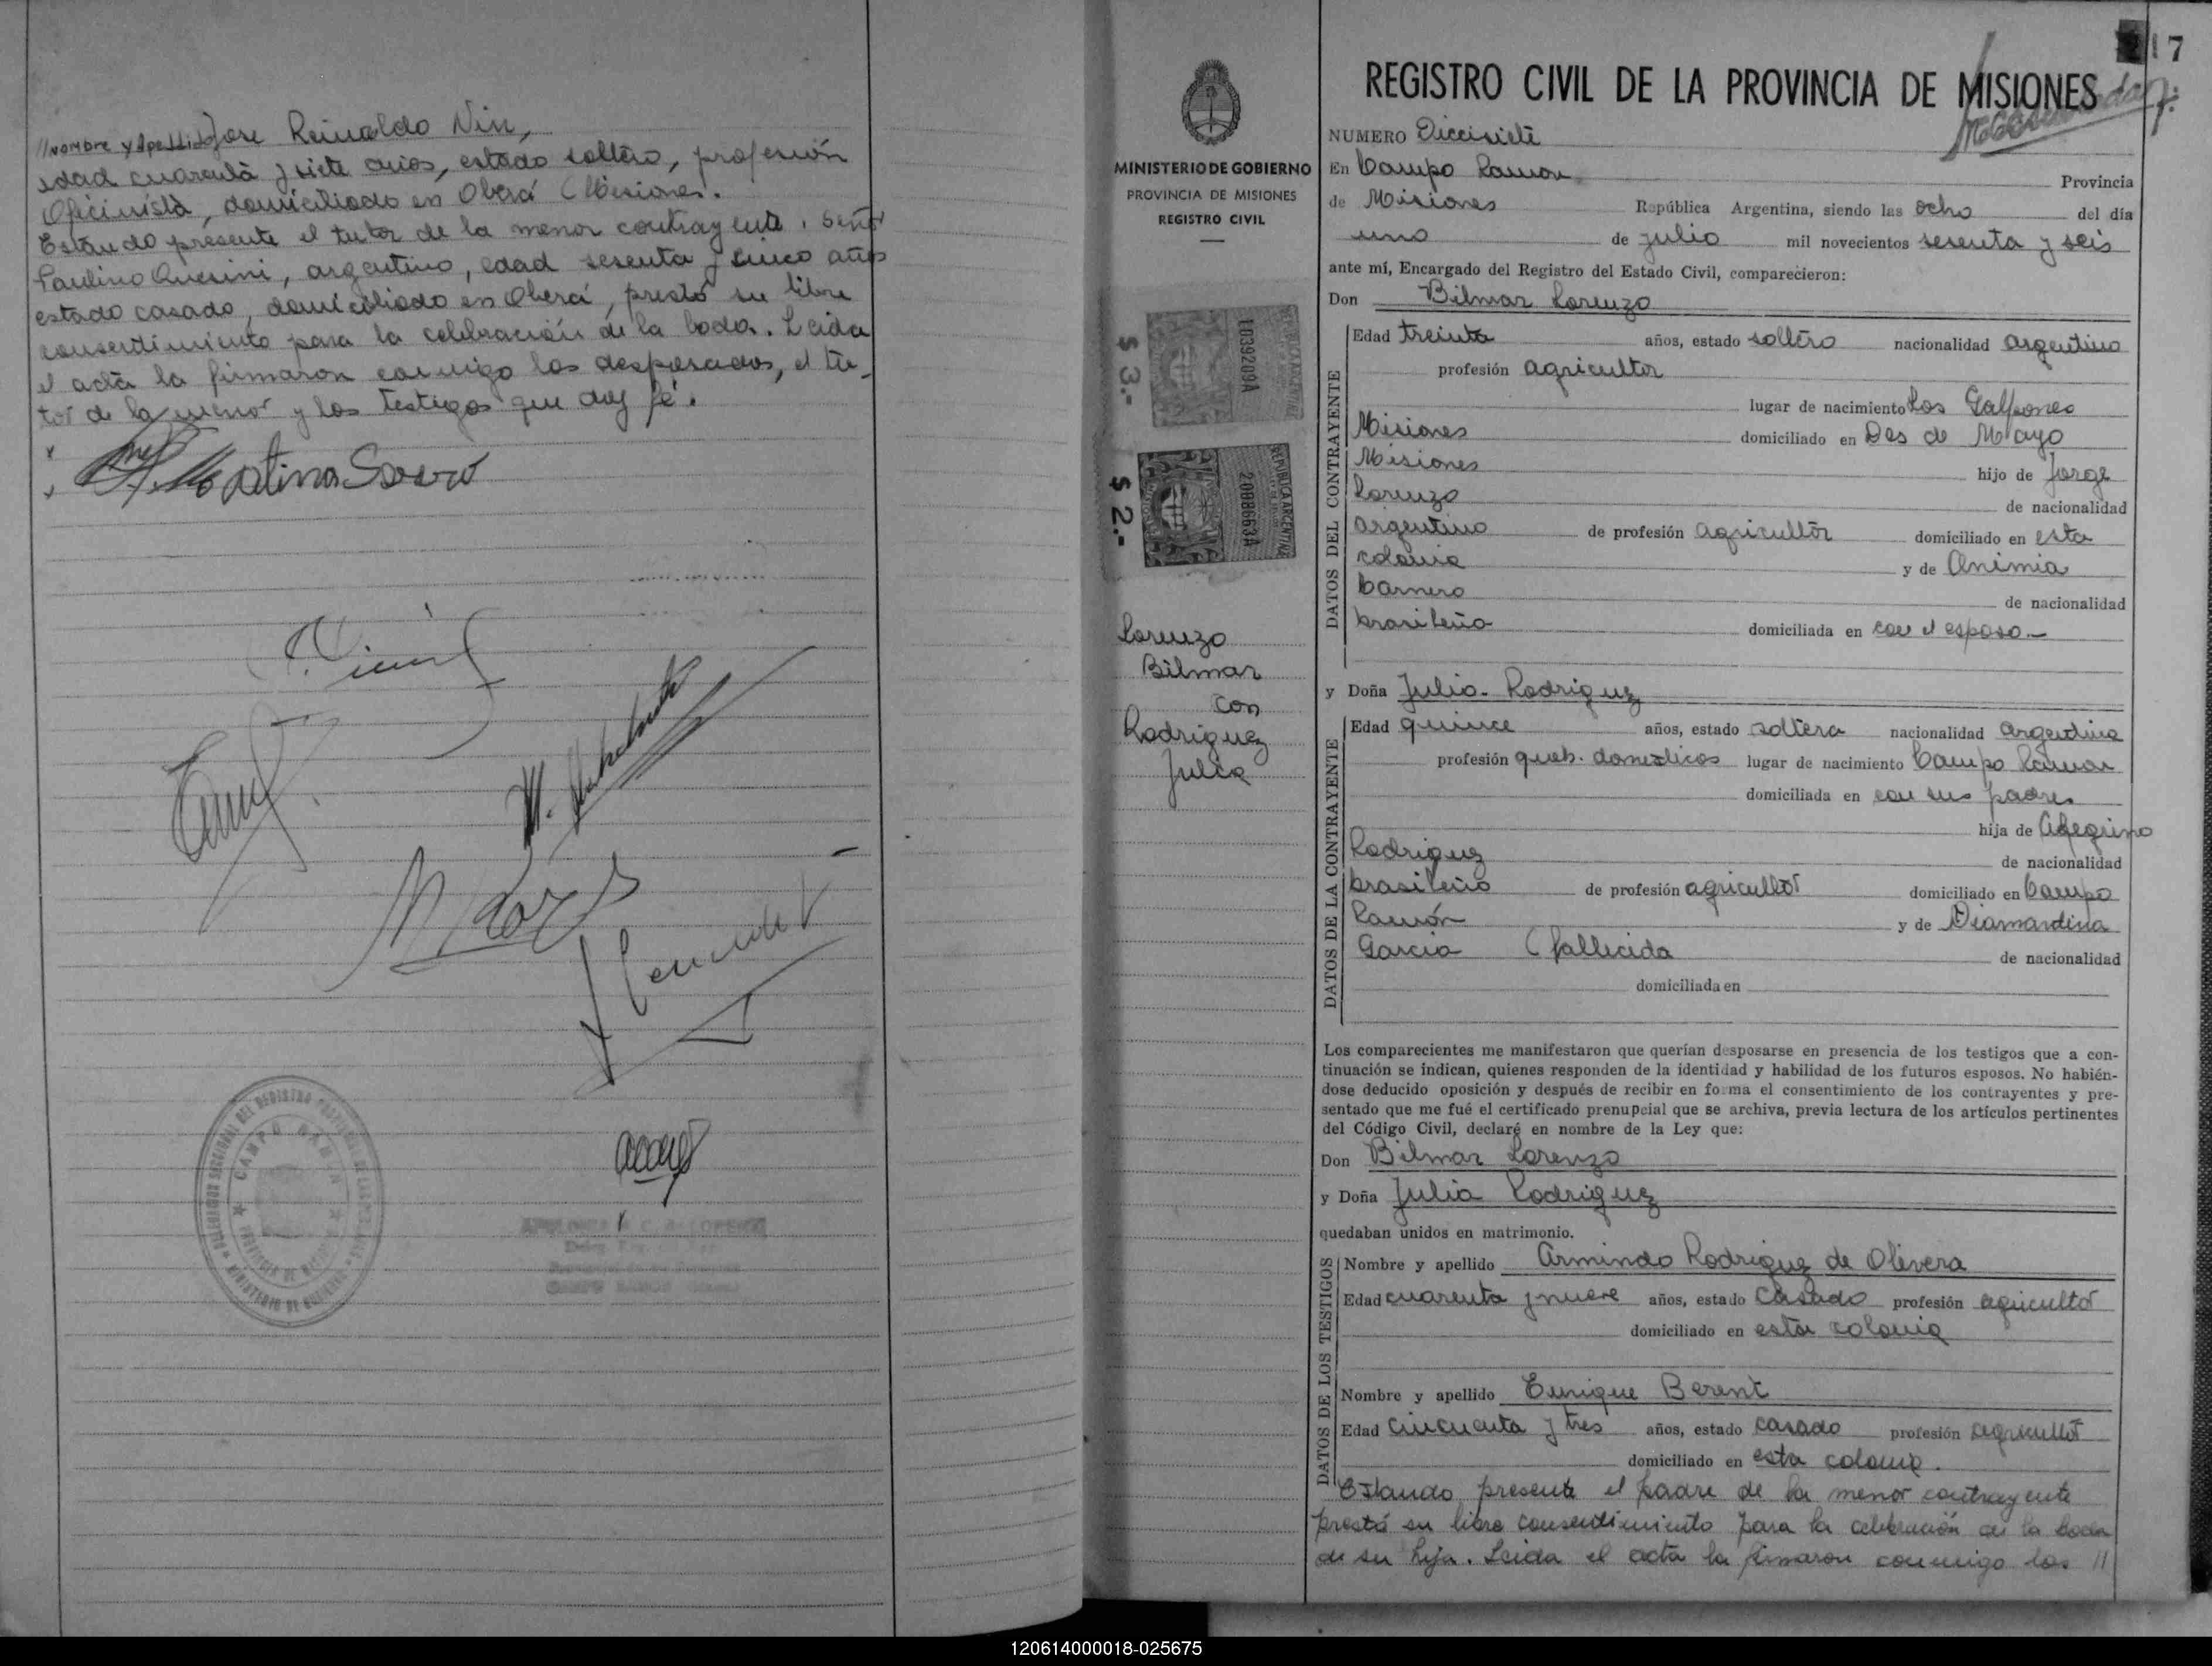 //Nombre y Apellido Jose Reinaldo Nin,
edad cuarenta y siete años, estado soltero, profesión
Oficinista, domiciliado en Oberá (Misiones.
Estando presente el tutor de la menor contrayente, señor
Paulino , argentino, edad sesenta y cinco años
estado casado, domiciliado en Oberá, prestó su libre
consentimiento para la celebración de la boda. Leida
el acta la firmaron conmigo los desposados, el tu-
tor de la menor y los testigos que doy fé.
CAMPO RAMON
217
REGISTRO CIVIL DE LA PROVINCIA DE MISIONES
MINISTERIO DE GOBIERNO
PROVINCIA DE MISIONES
REGISTRO CIVIL
$ 3.-
1039209A
$ 2.-
2088663A
REPUBLICA ARGENTINA
Lorenzo
Bilmar
con
Rodriguez
Julia
NUMERO Diecisiete
En Campo Ramon Provincia
de Misiones República Argentina, siendo las ocho del día
uno de julio mil novecientos sesenta y seis
ante mí, Encargado del Registro del Estado Civil, comparecieron:
Don Bilmar Lorenzo
DATOS DEL CONTRAYENTE
Edad treinta años, estado soltero nacionalidad argentino
profesión agricultor
lugar de nacimiento Los Galpones
Misiones domiciliado en Dos de Mayo
Misiones hijo de Jorge
Lorenzo de nacionalidad
argentino de profesión agricultor domiciliado en esta
colonia y de Animia
Carnero de nacionalidad
brasileña domiciliada en con el esposo.-
y Doña Julia Rodriguez
DATOS DE LA CONTRAYENTE
Edad quince años, estado soltera nacionalidad argentina
profesión queh. domesticos lugar de nacimiento Campo Ramon
domiciliada en con sus padres
hija de
Rodriguez de nacionalidad
brasileño de profesión agricultor domiciliado en Campo
Ramón y de Diamandina
Garcia (fallecida de nacionalidad
domiciliada en
Los comparecientes me manifestaron que querían desposarse en presencia de los testigos que a con-
tinuación se indican, quienes responden de la identidad y habilidad de los futuros esposos. No habién-
dose deducido oposición y después de recibir en forma el consentimiento de los contrayentes y pre-
sentado que me fué el certificado prenupcial que se archiva, previa lectura de los artículos pertinentes
del Código Civil, declaré en nombre de la Ley que:
Don Bilmar Lorenzo
y Doña Julia Rodriguez
quedaban unidos en matrimonio.
DATOS DE LOS TESTIGOS
Nombre y apellido Armindo Rodriguez de Olivera
Edad cuarenta y nueve años, estado casado profesión agricultor
domiciliado en esta colonia
Nombre y apellido Enrique Berent
Edad cincuenta y tres años, estado casado profesión agricultor
domiciliado en esta colonia.
Estando presente el padre de la menor contrayente
prestó su libre consentimiento para la celebración de la boda
de su hija. Leida el acta la firmaron conmigo los //
120614000018-025675